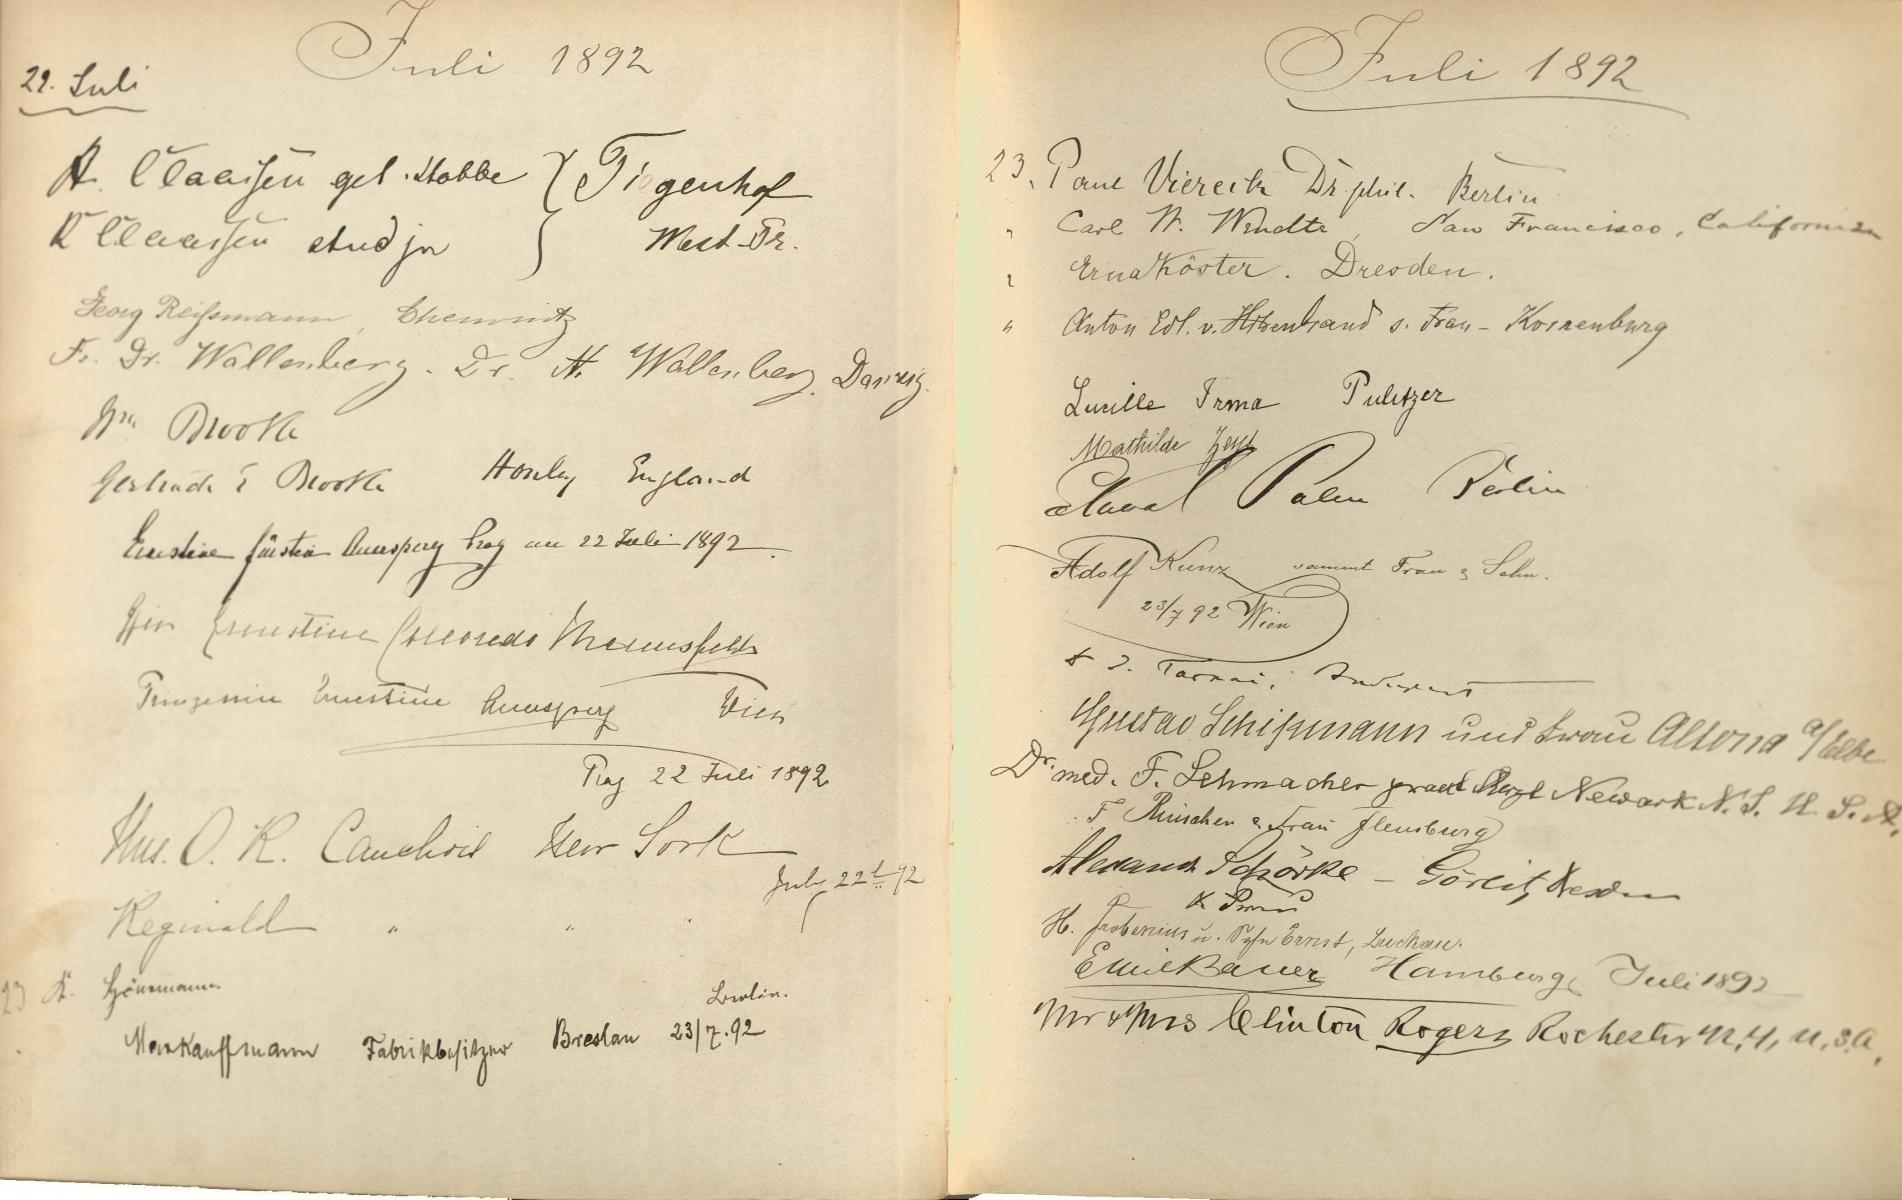 Juli 1892
22. Juli
A. Claassen geb. Stobbe } Tiegenhof
R Claassen stud jur West-Pr.
Georg Reißmann, Chemnitz
Fr. Dr. Wallenberg. Dr. A. Wallenberg. Danzig.
Wm Brooke
Gertrude E Brooke Honley England
Ernestine Fürstin Auersperg Prag am 22 Juli 1892.
Ernestine Colloredo Mannsfeld
Prinzessin Ernestine Auersperg Wien
Prag 22 Juli 1892
Mrs. O. R. Cauchois New York
July 22d 92
Reginald " " "
23 Berlin.
Max Kauffmann Fabrikbesitzer Breslau 23/7.92
Juli 1892
23. Paul Viereck Dr. phil. Berlin
" Carl W. Wendte, San Francisco, Californien
" Erna Köster. Dresden.
" Anton Edl. v. s. Frau - Korneuburg
Lucille Irma Pulitzer
Mathilde
Palm Berlin
Adolf Kunz sammt Frau & Sohn.
23/7 92 Wien
Budapest
Gustav Schipmann und Frau Altona a/Elbe
Dr. med. F. Schumacher pract. Arzt Newark N.J. U.S.A.
& Frau Flensburg
Alexand Schörke - Görlitz, Dresden
& Frau
H. Frobenius u. Sohn Ernst, Luckau.
Emil Bauer Hamburg, Juli 1892
Mr & Mrs Clinton Rogers Rochester N.Y., U.S.A.